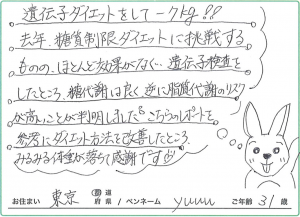 遺伝子ダイエットをして－7kg!!
去年、糖質制限ダイエットに挑戦する
ものの、ほとんど効果がなく… 遺伝子検査を
したところ、糖代謝は良く逆に脂質代謝のリスク
が高いことが判明しました。こちらのレポートを
参考にダイエット方法を改善したところ
みるみる体重が落ちて感謝です
お住まい 東京 都道府県 / ペンネーム yuuu ご年齢 31 歳